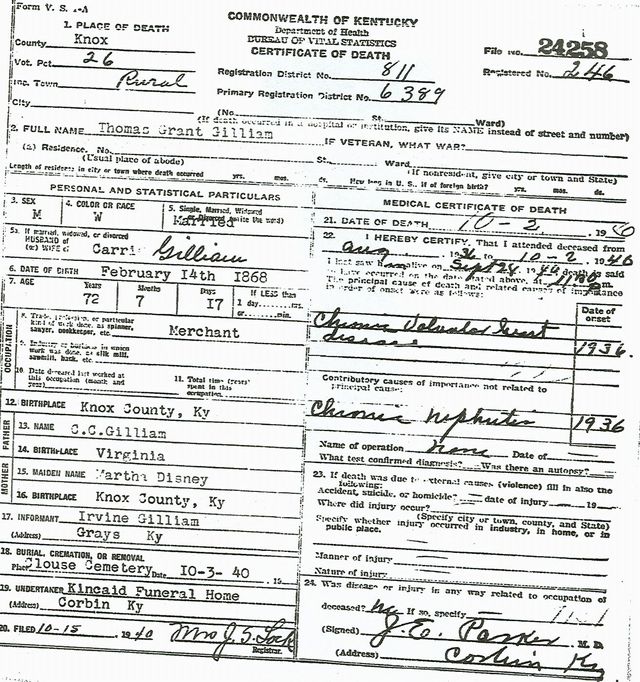 Form V. S. 1-A
COMMONWEALTH OF KENTUCKY
Department of Health
BUREAU OF VITAL STATISTICS
CERTIFICATE OF DEATH
1. PLACE OF DEATH
County Knox
Vot. Pct. 26
Inc. Town Rural
City
File No. 24258
Registered No. 246
Registration District No. 811
Primary Registration District No. 6389
(No. St. Ward)
(If death occurred in a hospital or institution, give its NAME instead of street and number)
2. FULL NAME Thomas Grant Gilliam
IF VETERAN, WHAT WAR?
(a) Residence. No. St. Ward
(Usual place of abode) (If nonresident, give city or town and State)
Length of residence in city or town where death occurred yrs. mos. ds. How long in U. S., if of foreign birth? yrs. mos. ds.
PERSONAL AND STATISTICAL PARTICULARS
3. SEX M
4. COLOR OR RACE W
5. Single, Married, Widowed or Divorced (write the word) Married
5a. If married, widowed, or divorced
HUSBAND of
(or) WIFE of Carri Gilliam
6. DATE OF BIRTH February 14th 1868
7. AGE Years 72 Months 7 Days 17 If LESS than 1 day hrs. or min.
OCCUPATION
8. Trade, profession, or particular kind of work done, as spinner, sawyer, bookkeeper, etc. Merchant
9. Industry or business in which work was done, as silk mill, sawmill, bank, etc.
10. Date deceased last worked at this occupation (month and year)
11. Total time (years) spent in this occupation
12. BIRTHPLACE Knox County, Ky
FATHER
13. NAME C.C.Gilliam
14. BIRTHPLACE Virginia
MOTHER
15. MAIDEN NAME Martha Disney
16. BIRTHPLACE Knox County, Ky
17. INFORMANT Irvine Gilliam
(Address) Grays Ky
18. BURIAL, CREMATION, OR REMOVAL
Place Clouse Cemetery Date 10-3-40
19. UNDERTAKER Kincaid Funeral Home
(Address) Corbin Ky
20. FILED 10-15 1940 Mrs J. S. Lock
Registrar.
MEDICAL CERTIFICATE OF DEATH
21. DATE OF DEATH 10-2 1940
22. I HEREBY CERTIFY, That I attended deceased from
Aug 1936 to 10-2 1940
I last saw alive on Sept 24 1940 death is said
to have occurred on the date stated above, at m.
The principal cause of death and related causes of importance
in order of onset were as follows:
Date of onset
Chronic Valvular heart
disease 1936
Contributory causes of importance not related to
principal cause:
Chronic nephritis 1936
Name of operation none Date of
What test confirmed diagnosis? Was there an autopsy?
23. If death was due to external causes (violence) fill in also the
following:
Accident, suicide, or homicide? date of injury 19
Where did injury occur?
(Specify city or town, county, and State)
Specify whether injury occurred in industry, in home, or in
public place.
Manner of injury
Nature of injury
24. Was disease or injury in any way related to occupation of
deceased? No If so, specify
(Signed) J. E. Parker M. D.
(Address) Corbin Ky